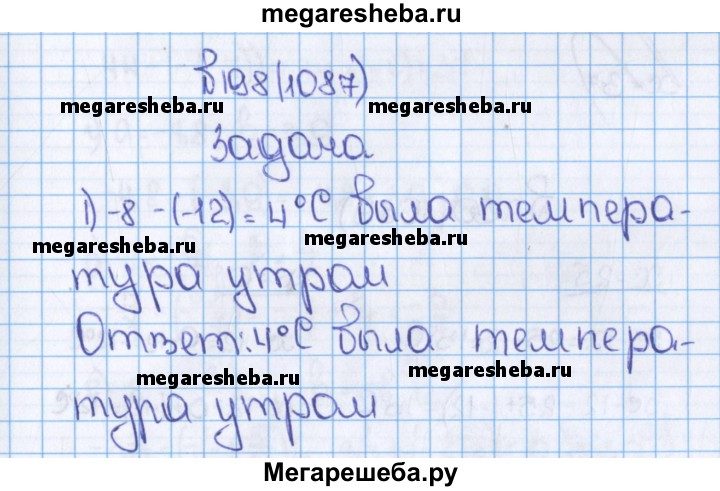 megaresheba.ru
№198(1087)
megaresheba.ru megaresheba.ru
Задача
1) -8 - (-12) = 4°C была темпера-
megaresheba.ru megaresheba.ru
тура утром
Ответ: 4°C была темпера-
megaresheba.ru megaresheba.ru
тура утром
Мегарешеба.ру